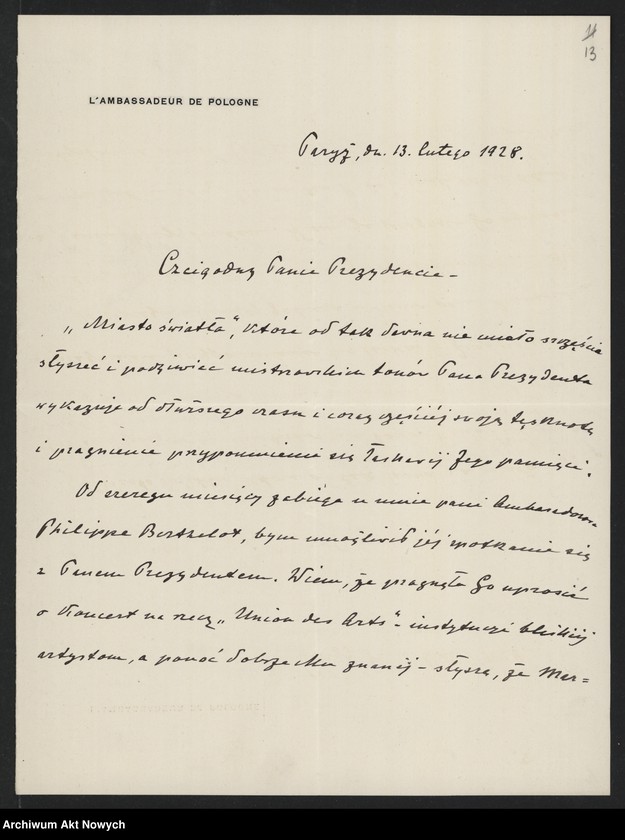 11
13
L'AMBASSADEUR DE POLOGNE
Paryż, dn. 13. lutego 1928.
Czcigodny Panie Prezydencie –
„Miasto światła", które od tak dawna nie miało szczęścia
słyszeć i podziwiać mistrzowskich tonów Pana Prezydenta
wykazuje od dłuższego czasu i coraz częściéj swoją tęsknotę
i pragnienie przypomnienia się łaskawéj Jego pamięci.
Od szeregu miesięcy zabiéga u mnie pani Ambasadorowa
Philippe Berthelot, bym umożliwił jéj spotkanie się
z Panem Prezydentem. Wiem, że pragnęła Go uprosić
o Koncert na rzecz „Union des Arts" – instytucji bliskiéj
artystom, a ponoć dobrze Mu znanéj – słyszę, że Mar=
Archiwum Akt Nowych